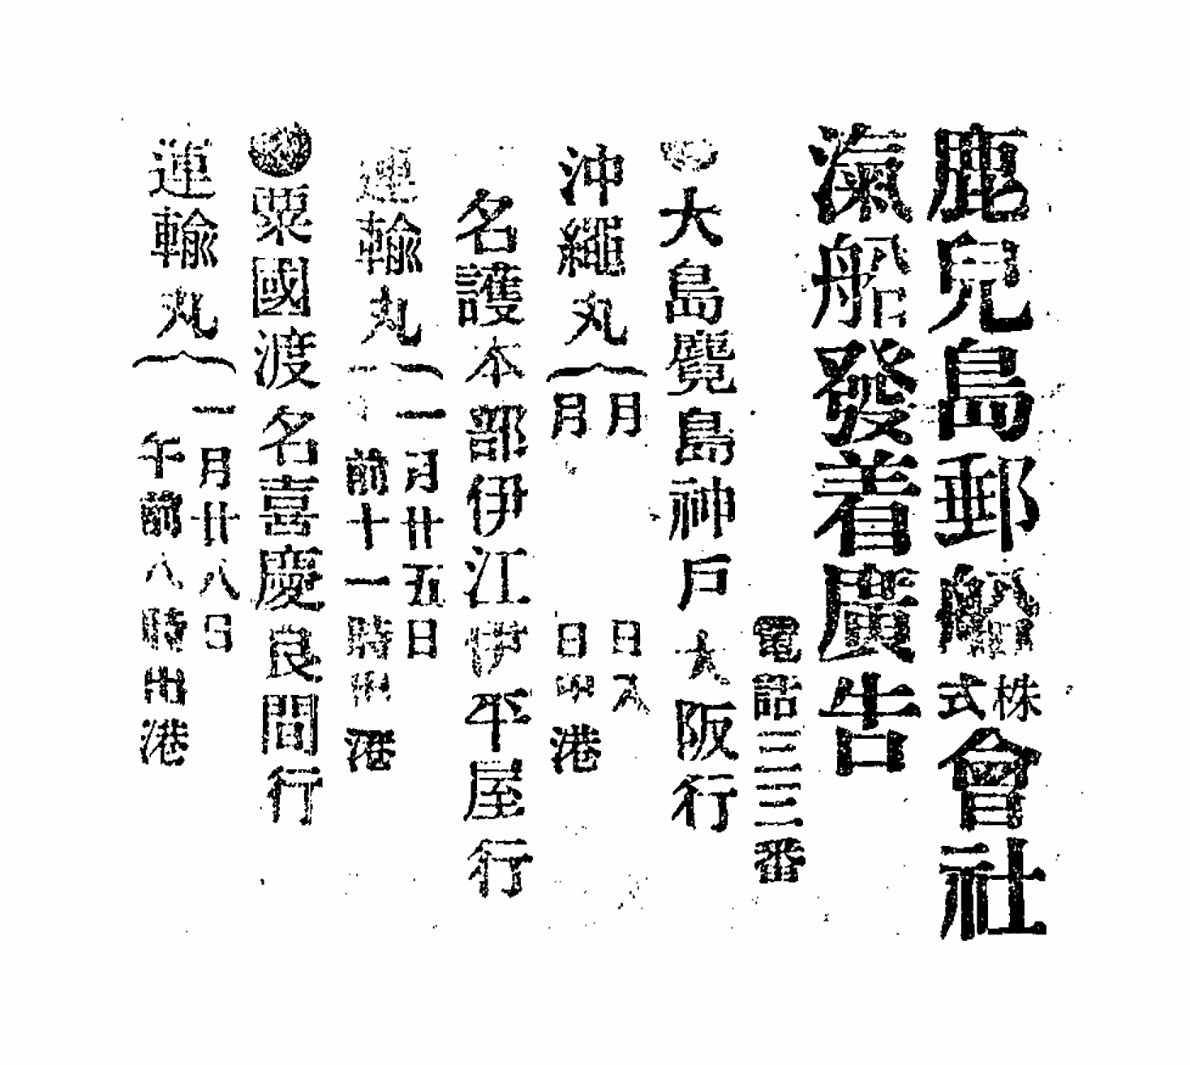 鹿兒島郵船株式會社
滊船發着廣告
電話三三番
●大島鹿兒島神戶大阪行
沖繩丸｛月 日入
月 日出港
名護本部伊江伊平屋行
運輸丸｛一月廿五日
前十一時出港
●粟國渡名喜慶良間行
運輸丸｛一月廿八日
午前八時出港